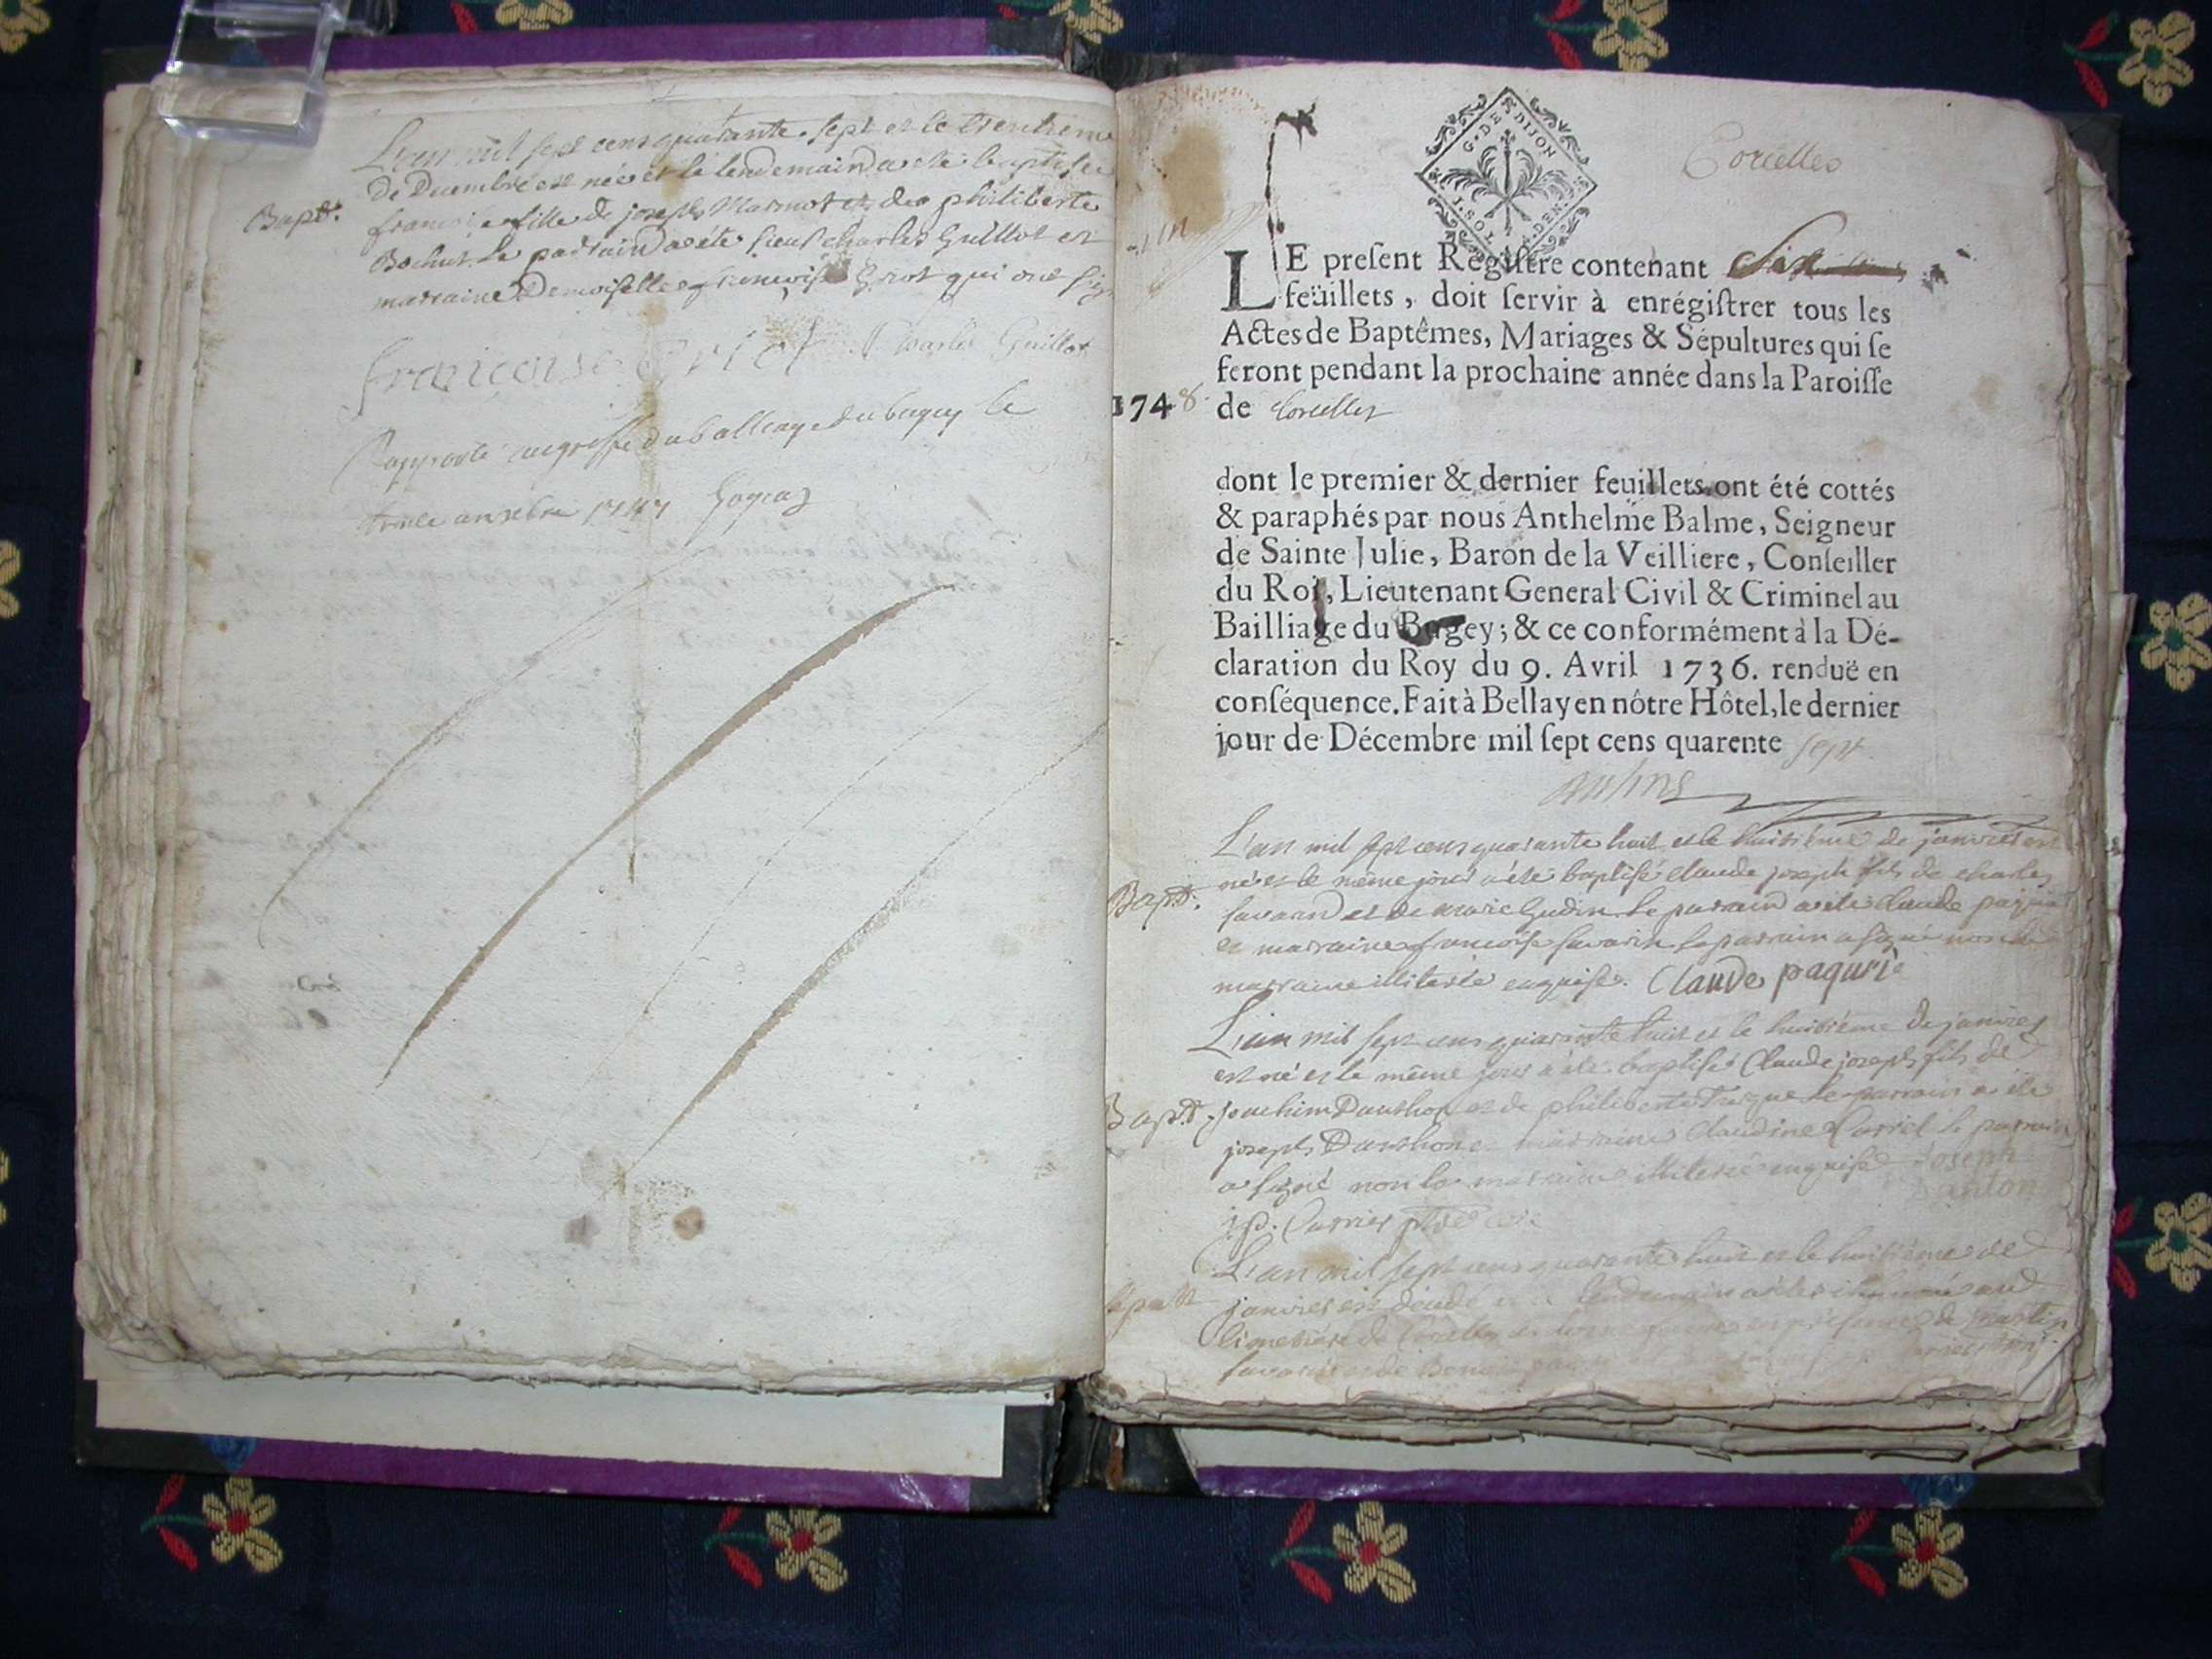 L'an mil sept cens quarante sept et le trentieme
de Decembre est née et le lendemain a ete baptisée
Bapt.
francoise fille de joseph Marmot et de philiberte
Bochus le parrain a été sieur charles Guillot et
marraine Demoiselle francoise Griot qui ont sig
françoise Griot Charles Guillot
Rapporté au greffe du balliage du bugey le
1747
G. DE DIJON
I. SOL DEN.
Corcelles
LE preſent Regiſtre contenant Six
feüillets, doit ſervir à enrégiſtrer tous les
Actes de Baptêmes, Mariages & Sépultures qui ſe
feront pendant la prochaine année dans la Paroiſſe
1748. de Corcelles
dont le premier & dernier feuillets ont été cottés
& paraphés par nous Anthelme Balme, Seigneur
de Sainte Julie, Baron de la Veilliere, Conſeiller
du Roi, Lieutenant General Civil & Criminel au
Bailliage du Bugey; & ce conformément à la Dé-
claration du Roy du 9. Avril 1736. renduë en
conſéquence. Fait à Bellay en nôtre Hôtel, le dernier
jour de Décembre mil ſept cens quarente sept
L'an mil sept cens quarante huit et le huitième de janvier est
né et le même jour a été baptisé claude joseph fils de charles
Bapt.
savarin et de marie Gudin le parrain a ete claude
et marraine francoise savarin le parrain a signé non la
marraine illiterée enquise. Claude paquri
L'an mil sept cens quarante huit et le huitième de janvier
est né et le même jour a été baptisé Claude joseph fils de
Bapt. joachim Danthon et de philiberte le parrain a été
joseph Danthon et marraine Claudine Carriel le parrain
a signé non la marraine illiterée enquise joseph
danton
L'an mil sept cens quarante huit et le huitième de
janvier est décédé et le lendemain a été inhumé au
cimetière de Corcelles en présence de martin
savarin et de